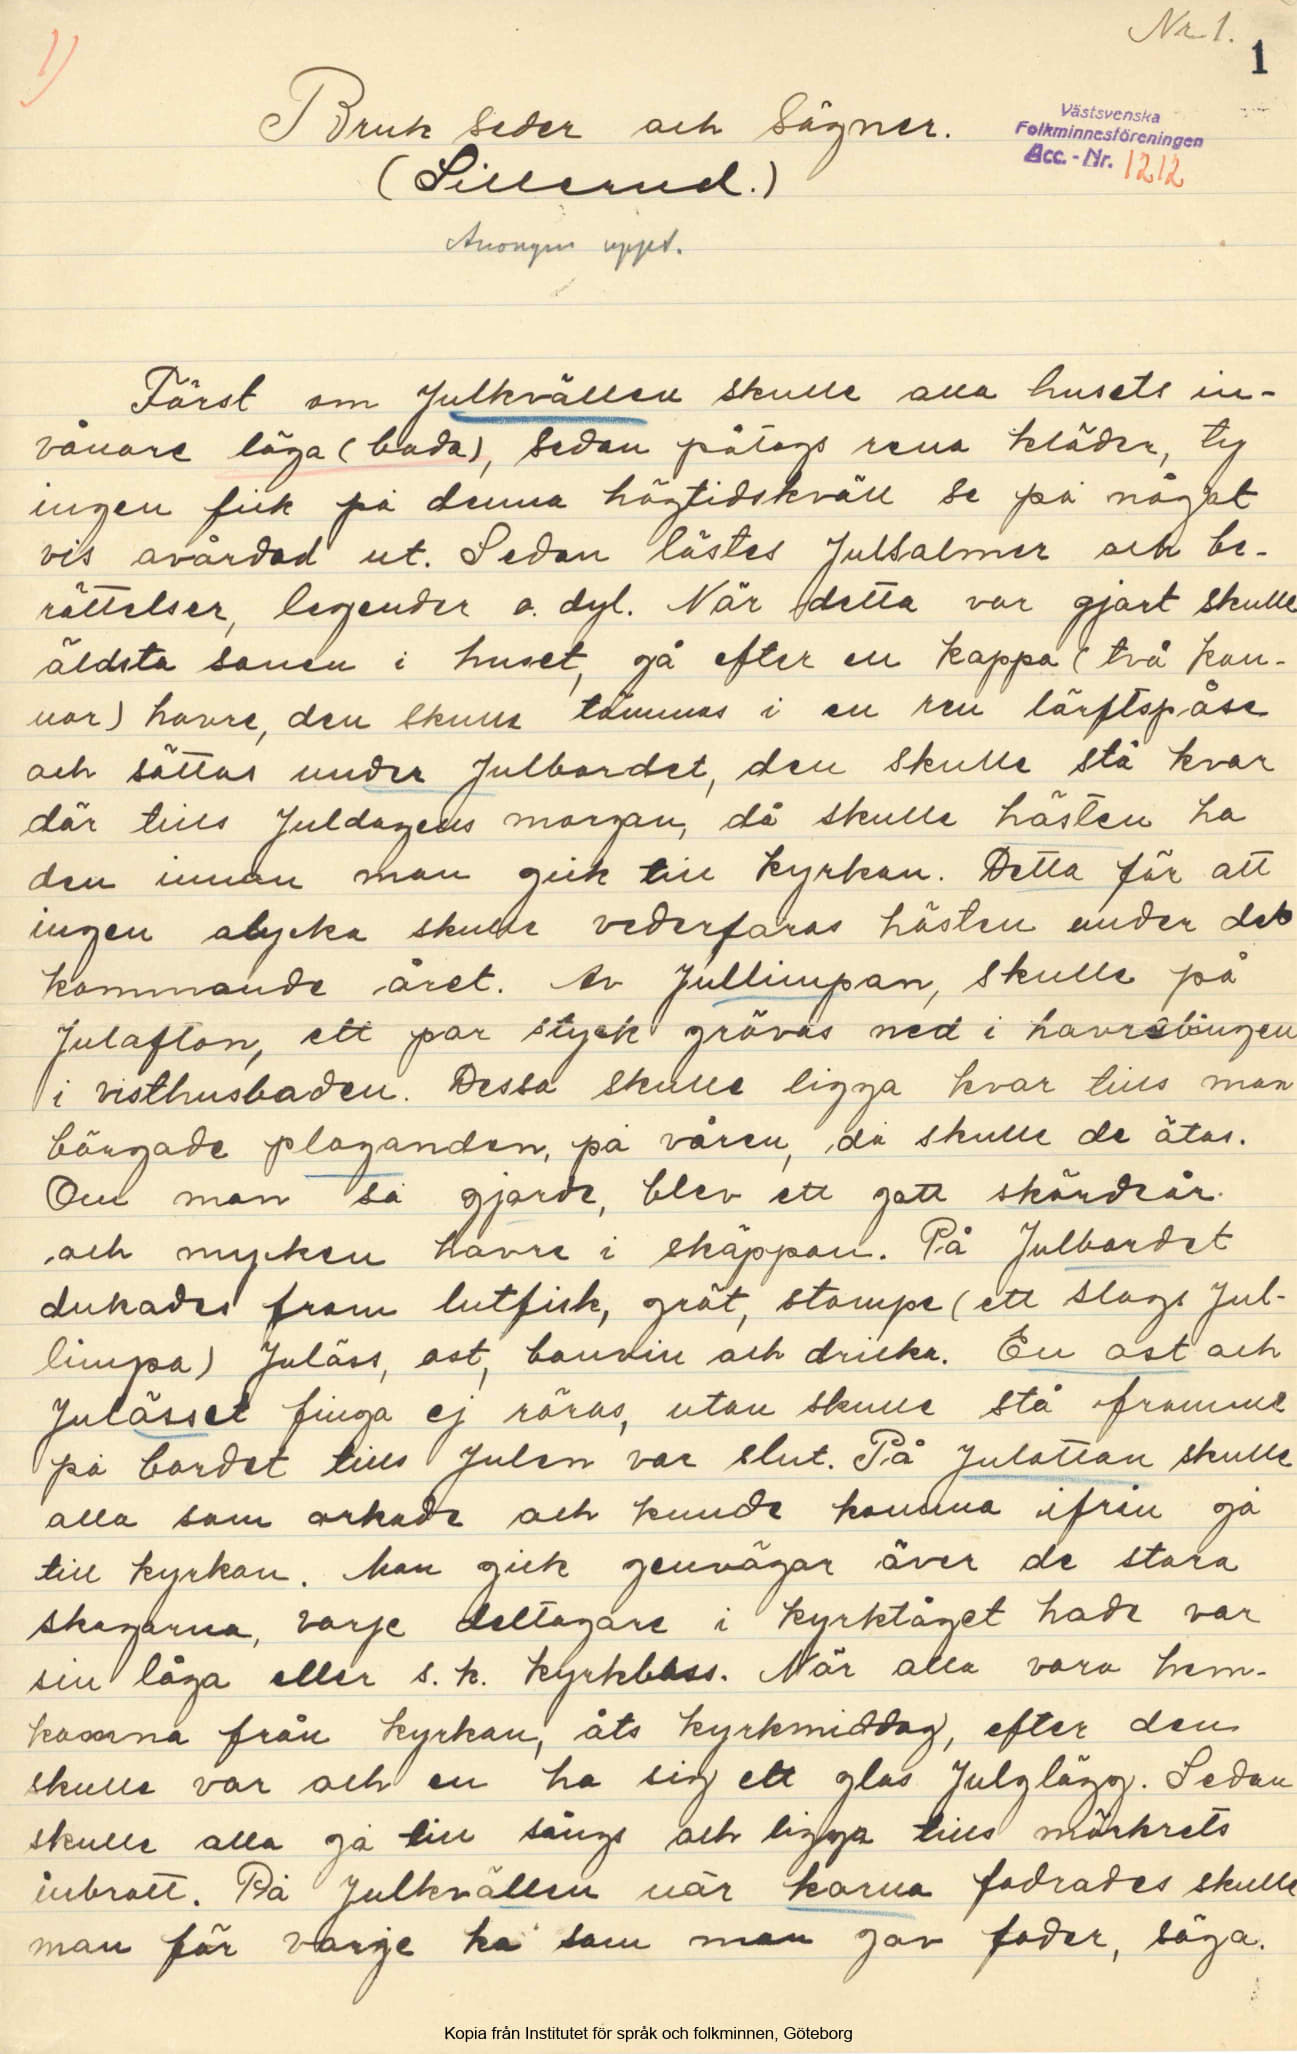 Nr 1.
1)
1
Bruk seder och Sägner.
Västsvenska
Folkminnesföreningen
Acc.-Nr. 1212
(Sillerud.)
Anonym uppt.
Först om Julkvällen skulle alla husets in-
vånare löga (bada), sedan påtogs rena kläder, ty
ingen fick på denna högtidskväll se på något
vis ovårdad ut. Sedan lästes Julsalmer och be-
rättelser, legender o. dyl. När detta var gjort skulle
äldsta sonen i huset, gå efter en kappa (två kan-
nor) havre, den skulle tömmas i en ren lärftspåse
och sättas under Julbordet, den skulle stå kvar
där tills Juldagens morgon, då skulle hästen ha
den innan man gick till kyrkan. Detta för att
ingen olycka skulle vederfaras hästen under det
kommande året. Av Jullimpan, skulle på
Julafton, ett par styck grävas ned i havrebingen
i visthusboden. Dessa skulle ligga kvar tills man
börgade ploganden, på våren, då skulle de ätas.
Om man så gjorde, blev ett gott skördeår
och mycken havre i skäppan. På Julbordet
dukades fram lutfisk, gröt, stompe (ett slags Jul-
limpa) Julöss, ost, bouvin och dricka. En ost och
Julösset finga ej röras, utan skulle stå framme
på bordet tills Julen var slut. På Julottan skulle
alla som orkade och kunde komma ifrån gå
till kyrkan. Man gick genvägar över de stora
skogarna, varje deltagare i kyrktåget hade var
sin låga eller s. k. kyrkbloss. När alla voro hem-
komna från kyrkan, åts kyrkmiddag, efter den
skulle var och en ha sig ett glas Julglögg. Sedan
skulle alla gå till sängs och ligga tills mörkrets
inbrott. På Julkvällen när korna fodrades skulle
man för varje ko som man gav foder, säga.
Kopia från Institutet för språk och folkminnen, Göteborg